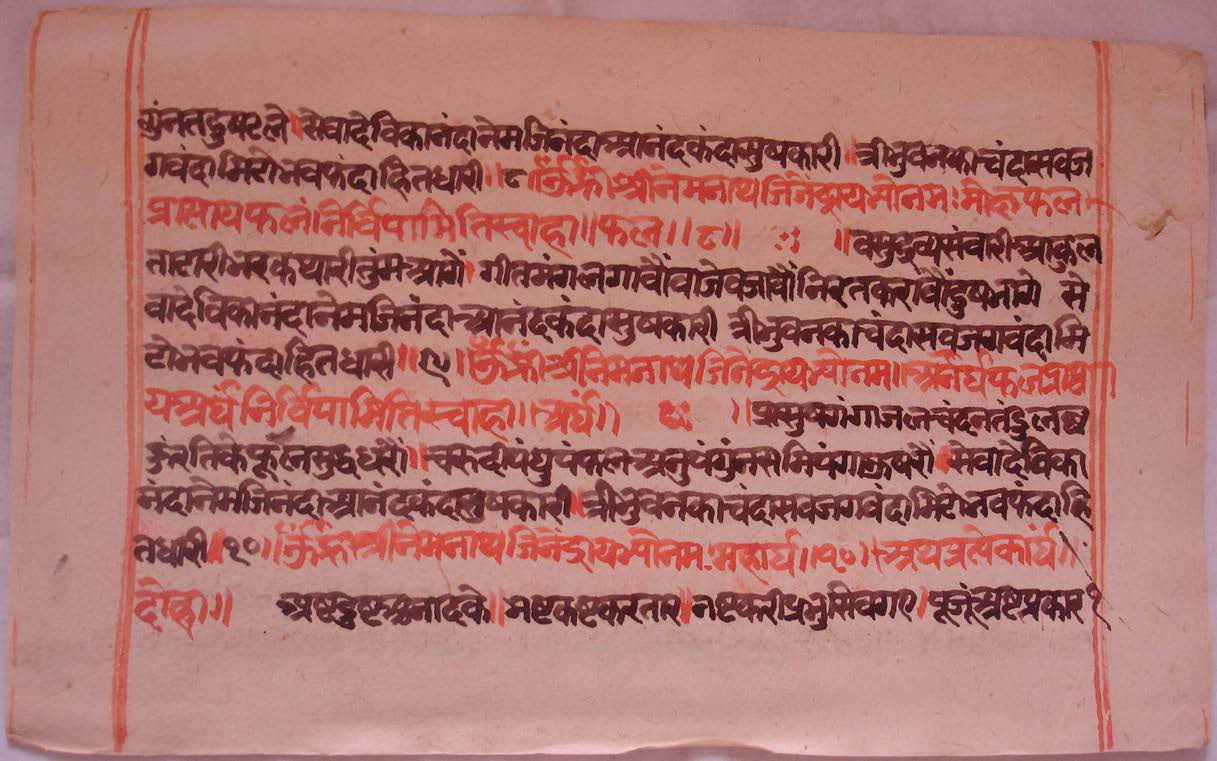 गुंनतदुषटले॥ सेवादेविकानंदानेमजिनंदाआनंदकंदासुषकारी॥ त्रीभुवनकाचंदासवज
गवंदामिटोभवफंदाहितधारी॥ ८॥ ॐह्रीं श्रीनेमनाथजिनेंद्रायमीनमः मोक्षफल
प्राप्तायफलंनिर्विपामितिस्वाहा॥ फल॥ ८॥ ॥ वसुदुव्यसंवारीआकुल
ताटारीभरकथारीतुंमआगें॥ गीतमंगलगावौंवाजेवजावौंनिरतकरावौंदुषभागे से
वादेविकानंदानेमजिनंदाआनंदकंदासुषकारी त्रीभुवनकाचंदासवजगवंदामि
टोभवफंदाहितधारी॥ ९॥ ॐह्रीं श्रीनेमनाथजिनेंद्रायमीनम॥ अनर्घफलप्राप्ता
यअर्घंनिर्विपामितिस्वाहा॥ अर्घं॥ ॥ प्रासुषगंगाजलचंदनतंडुल
केफूल चरुदीपंधुपंफलअनुपंगुंनस सेवादेविका
नंदानेमजिनंदाआनंदकंदासुषकारी॥ त्रीभुवनकाचंदासवजगवंदामिटोभवफंदाहि
तधारी॥ १०॥ ॐह्रीं श्रीनेमनाथजिनेंद्रायमीनम महार्घ॥ १०॥ अथप्रत्येकार्घ॥
दोहा॥ अष्टदुष्टअनादके॥ भष्टकष्टकरतार॥ नष्टकरीप्रभुसिवगए॥ पूजूंअष्टप्रकार १